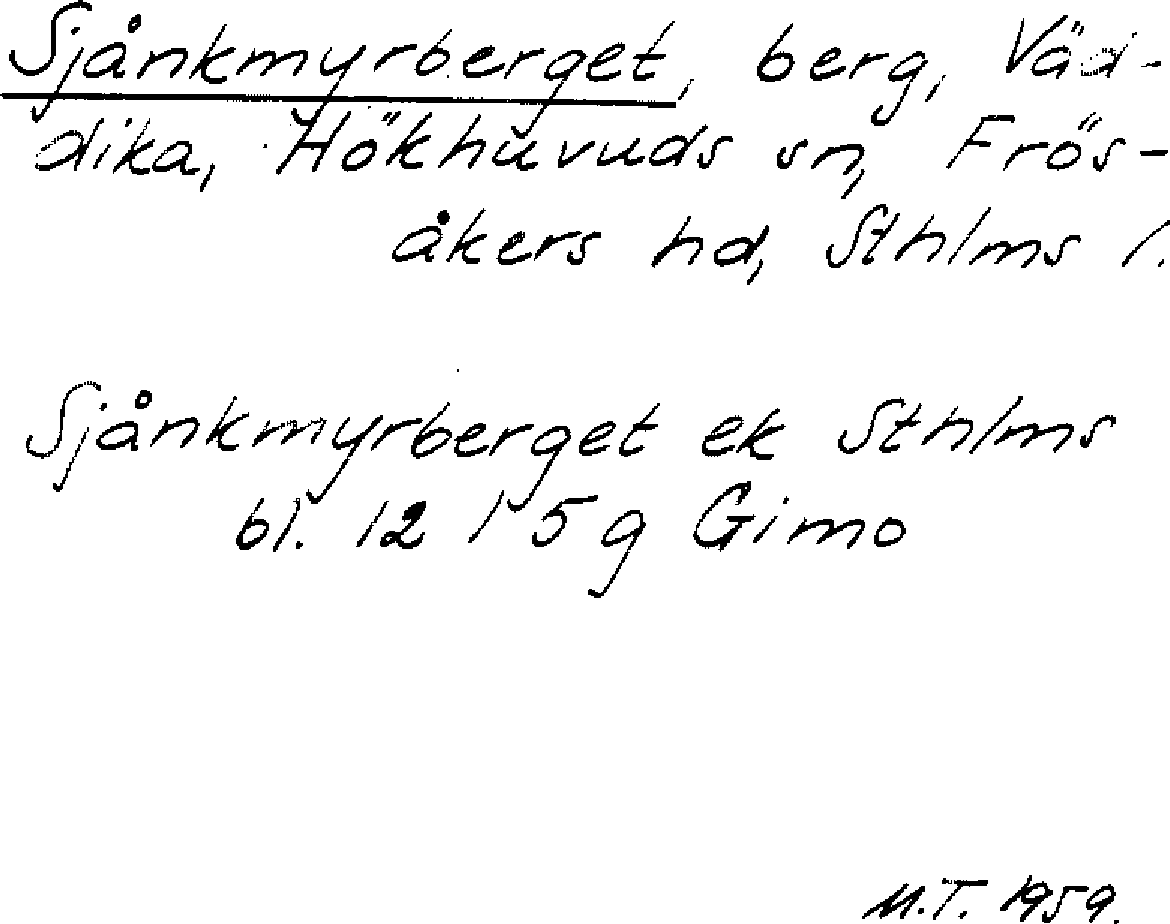 Sjånkmyrberget, berg, Väd-
dika, Hökhuvuds sn, Frös-
åkers hd, Sthlms l.
Sjånkmyrberget ek Sthlms
bl. 12 I 5 g Gimo
M.T. 1959.